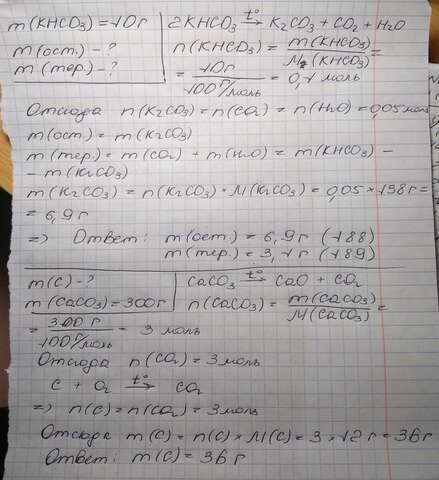 m(KHCO3) = 10 г
m(ост.) - ?
m(тер.) - ?
2KHCO3 t°→ K2CO3 + CO2 + H2O
n(KHCO3) = m(KHCO3) / Mr(KHCO3) =
= 10г / 100 г/моль = 0,1 моль
Отсюда n(K2CO3) = n(CO2) = n(H2O) = 0,05 моль
m(ост.) = m(K2CO3)
m(тер.) = m(CO2) + m(H2O) = m(KHCO3) -
- m(K2CO3)
m(K2CO3) = n(K2CO3) · M(K2CO3) = 0,05 × 138 г =
= 6,9 г
=> Ответ: m(ост.) = 6,9 г (188)
m(тер.) = 3,1 г (189)
m(C) - ?
m(CaCO3) = 300г
CaCO3 t°→ CaO + CO2
n(CaCO3) = m(CaCO3) / M(CaCO3) =
= 300 г / 100 г/моль = 3 моль
Отсюда n(CO2) = 3 моль
C + O2 t°→ CO2
=> n(C) = n(CO2) = 3 моль
Отсюда m(C) = n(C) × M(C) = 3 × 12 г = 36 г
Ответ: m(C) = 36 г